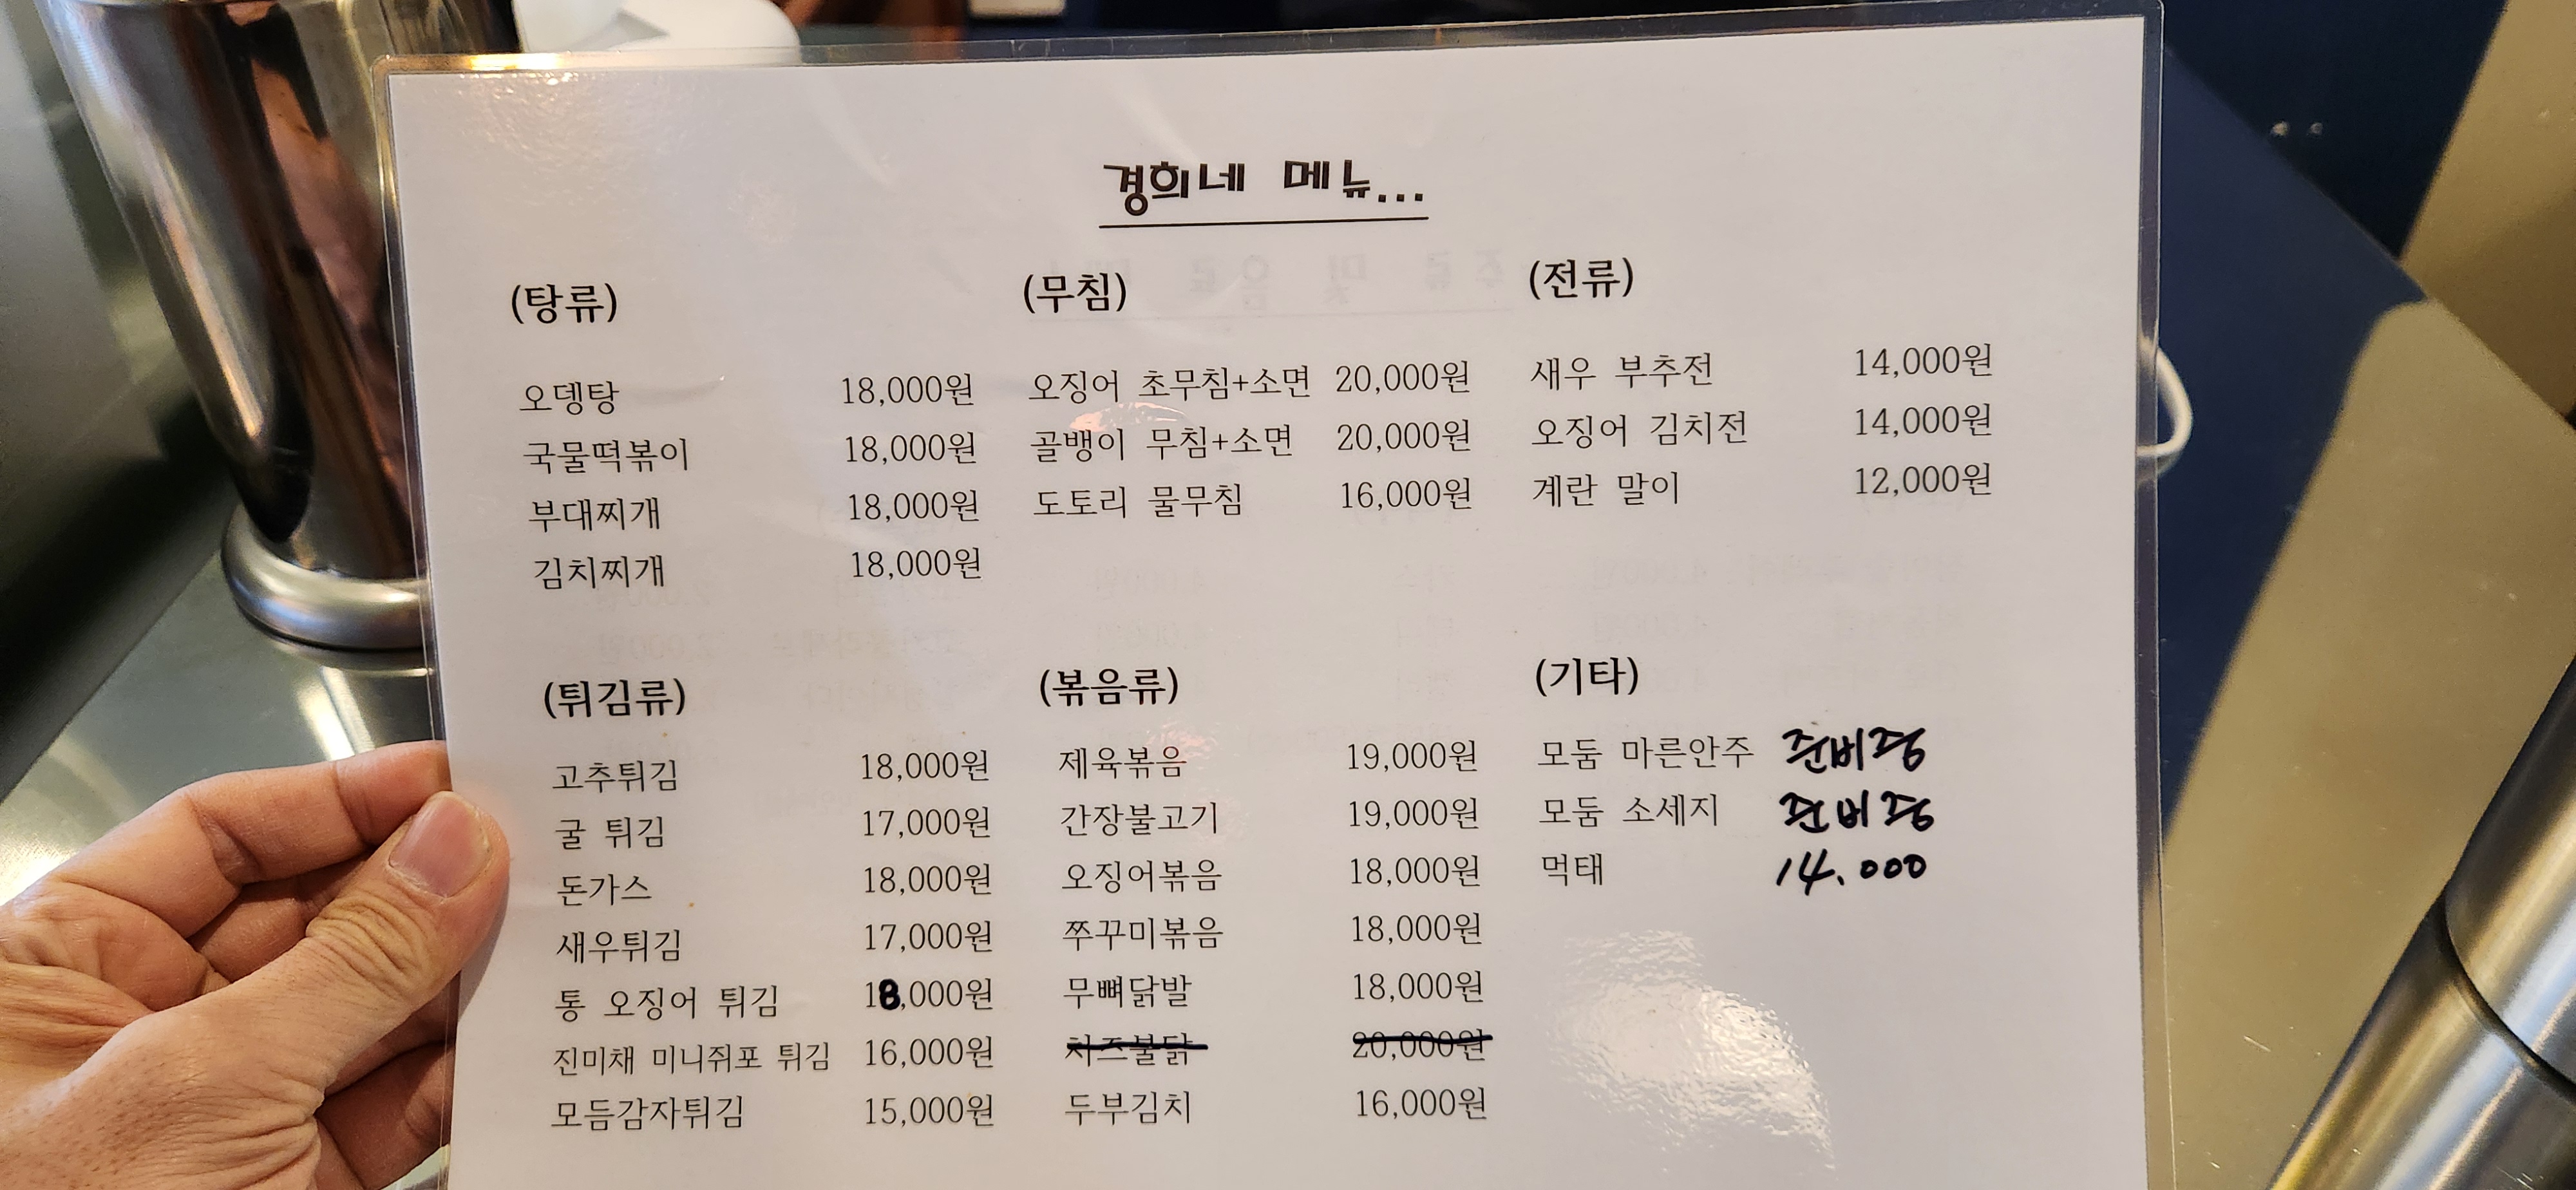 경희네 메뉴...
(탕류)
오뎅탕 18,000원
국물떡볶이 18,000원
부대찌개 18,000원
김치찌개 18,000원
(무침)
오징어 초무침+소면 20,000원
골뱅이 무침+소면 20,000원
도토리 물무침 16,000원
(전류)
새우 부추전 14,000원
오징어 김치전 14,000원
계란 말이 12,000원
(튀김류)
고추튀김 18,000원
굴 튀김 17,000원
돈가스 18,000원
새우튀김 17,000원
통 오징어 튀김 18,000원
진미채 미니쥐포 튀김 16,000원
모듬감자튀김 15,000원
(볶음류)
제육볶음 19,000원
간장불고기 19,000원
오징어볶음 18,000원
쭈꾸미볶음 18,000원
무뼈닭발 18,000원
치즈불닭 20,000원
두부김치 16,000원
(기타)
모둠 마른안주 준비중
모둠 소세지 준비중
먹태 14.000